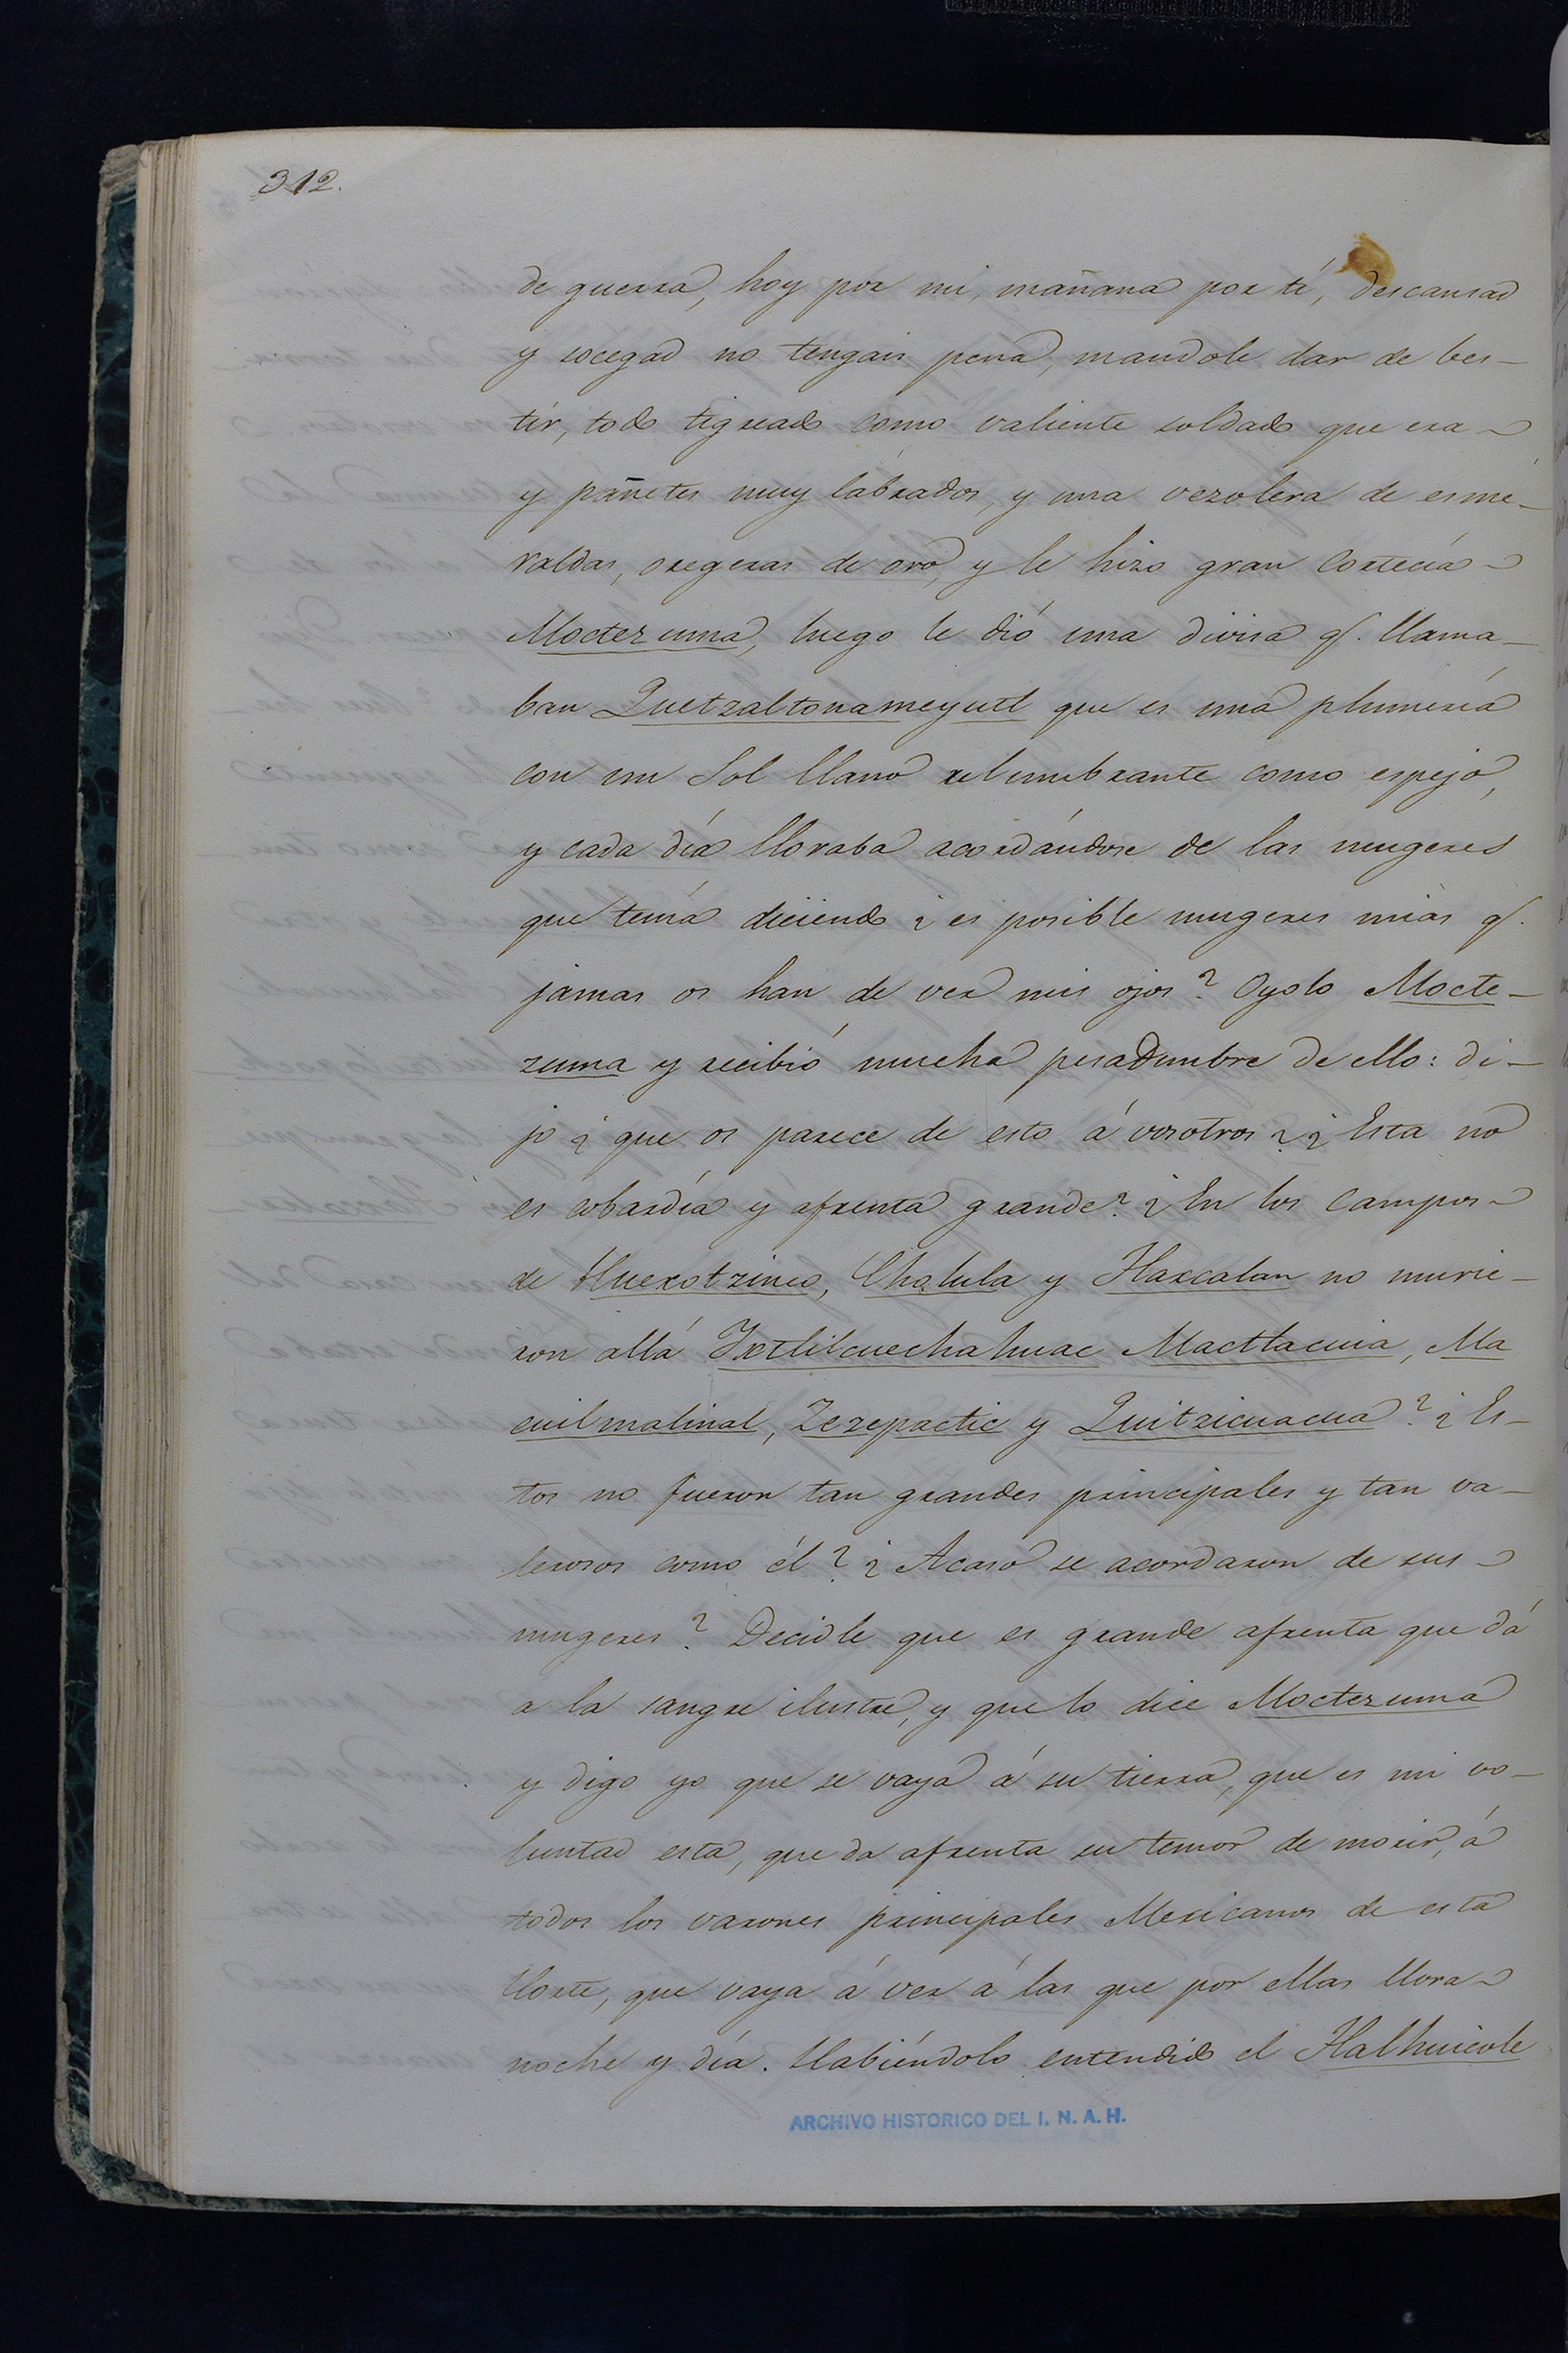 312.
de guerra, hoy por mi, mañana por tí, descansad
y socegad no tengais pena, mandole dar de bes-
tir, todo tigreado como valiente soldado que era
y pañetes muy labrados, y una vezolera de esme-
raldas, oregeras de oro, y le hizo gran cortecía
Moctezuma, luego le dió una divisa q. llama-
ban Quetzaltonameyutl que es una plumería
con un Sol llano relumbrante como espejo,
y cada día lloraba acordándose de las mugeres
que tenía diciendo ¿es posible mugeres mias q.
jamas os han de ver mis ojos? Oyolo Mocte-
zuma y recibió mucha pesadumbre de ello: di-
jo ¿que os parece de esto á vosotros? ¿Esta no
es cobardía y afrenta grande? ¿En los campos
de Huexotzinco, Cholula y Tlaxcalan no murie-
ron allá Ixtlilcuechahuac Mactlacuia, Ma
cuilmalinal, Zezepactic y Quitzicuacua? ¿Es-
tos no fueron tan grandes principales y tan va-
lerosos como él? ¿Acaso se acordaron de sus
mugeres? Decidle que es grande afrenta que dá
a la sangre ilustre, y que lo dice Moctezuma
y digo yo que se vaya á su tierra, que es mi vo-
luntad esta, que da afrenta su temor de morir, á
todos los varones principales Mexicanos de esta
Corte, que vaya á ver á las que por ellas llora
noche y día. Habiéndolo entendido el Tlalhuicole
ARCHIVO HISTORICO DEL I. N. A. H.